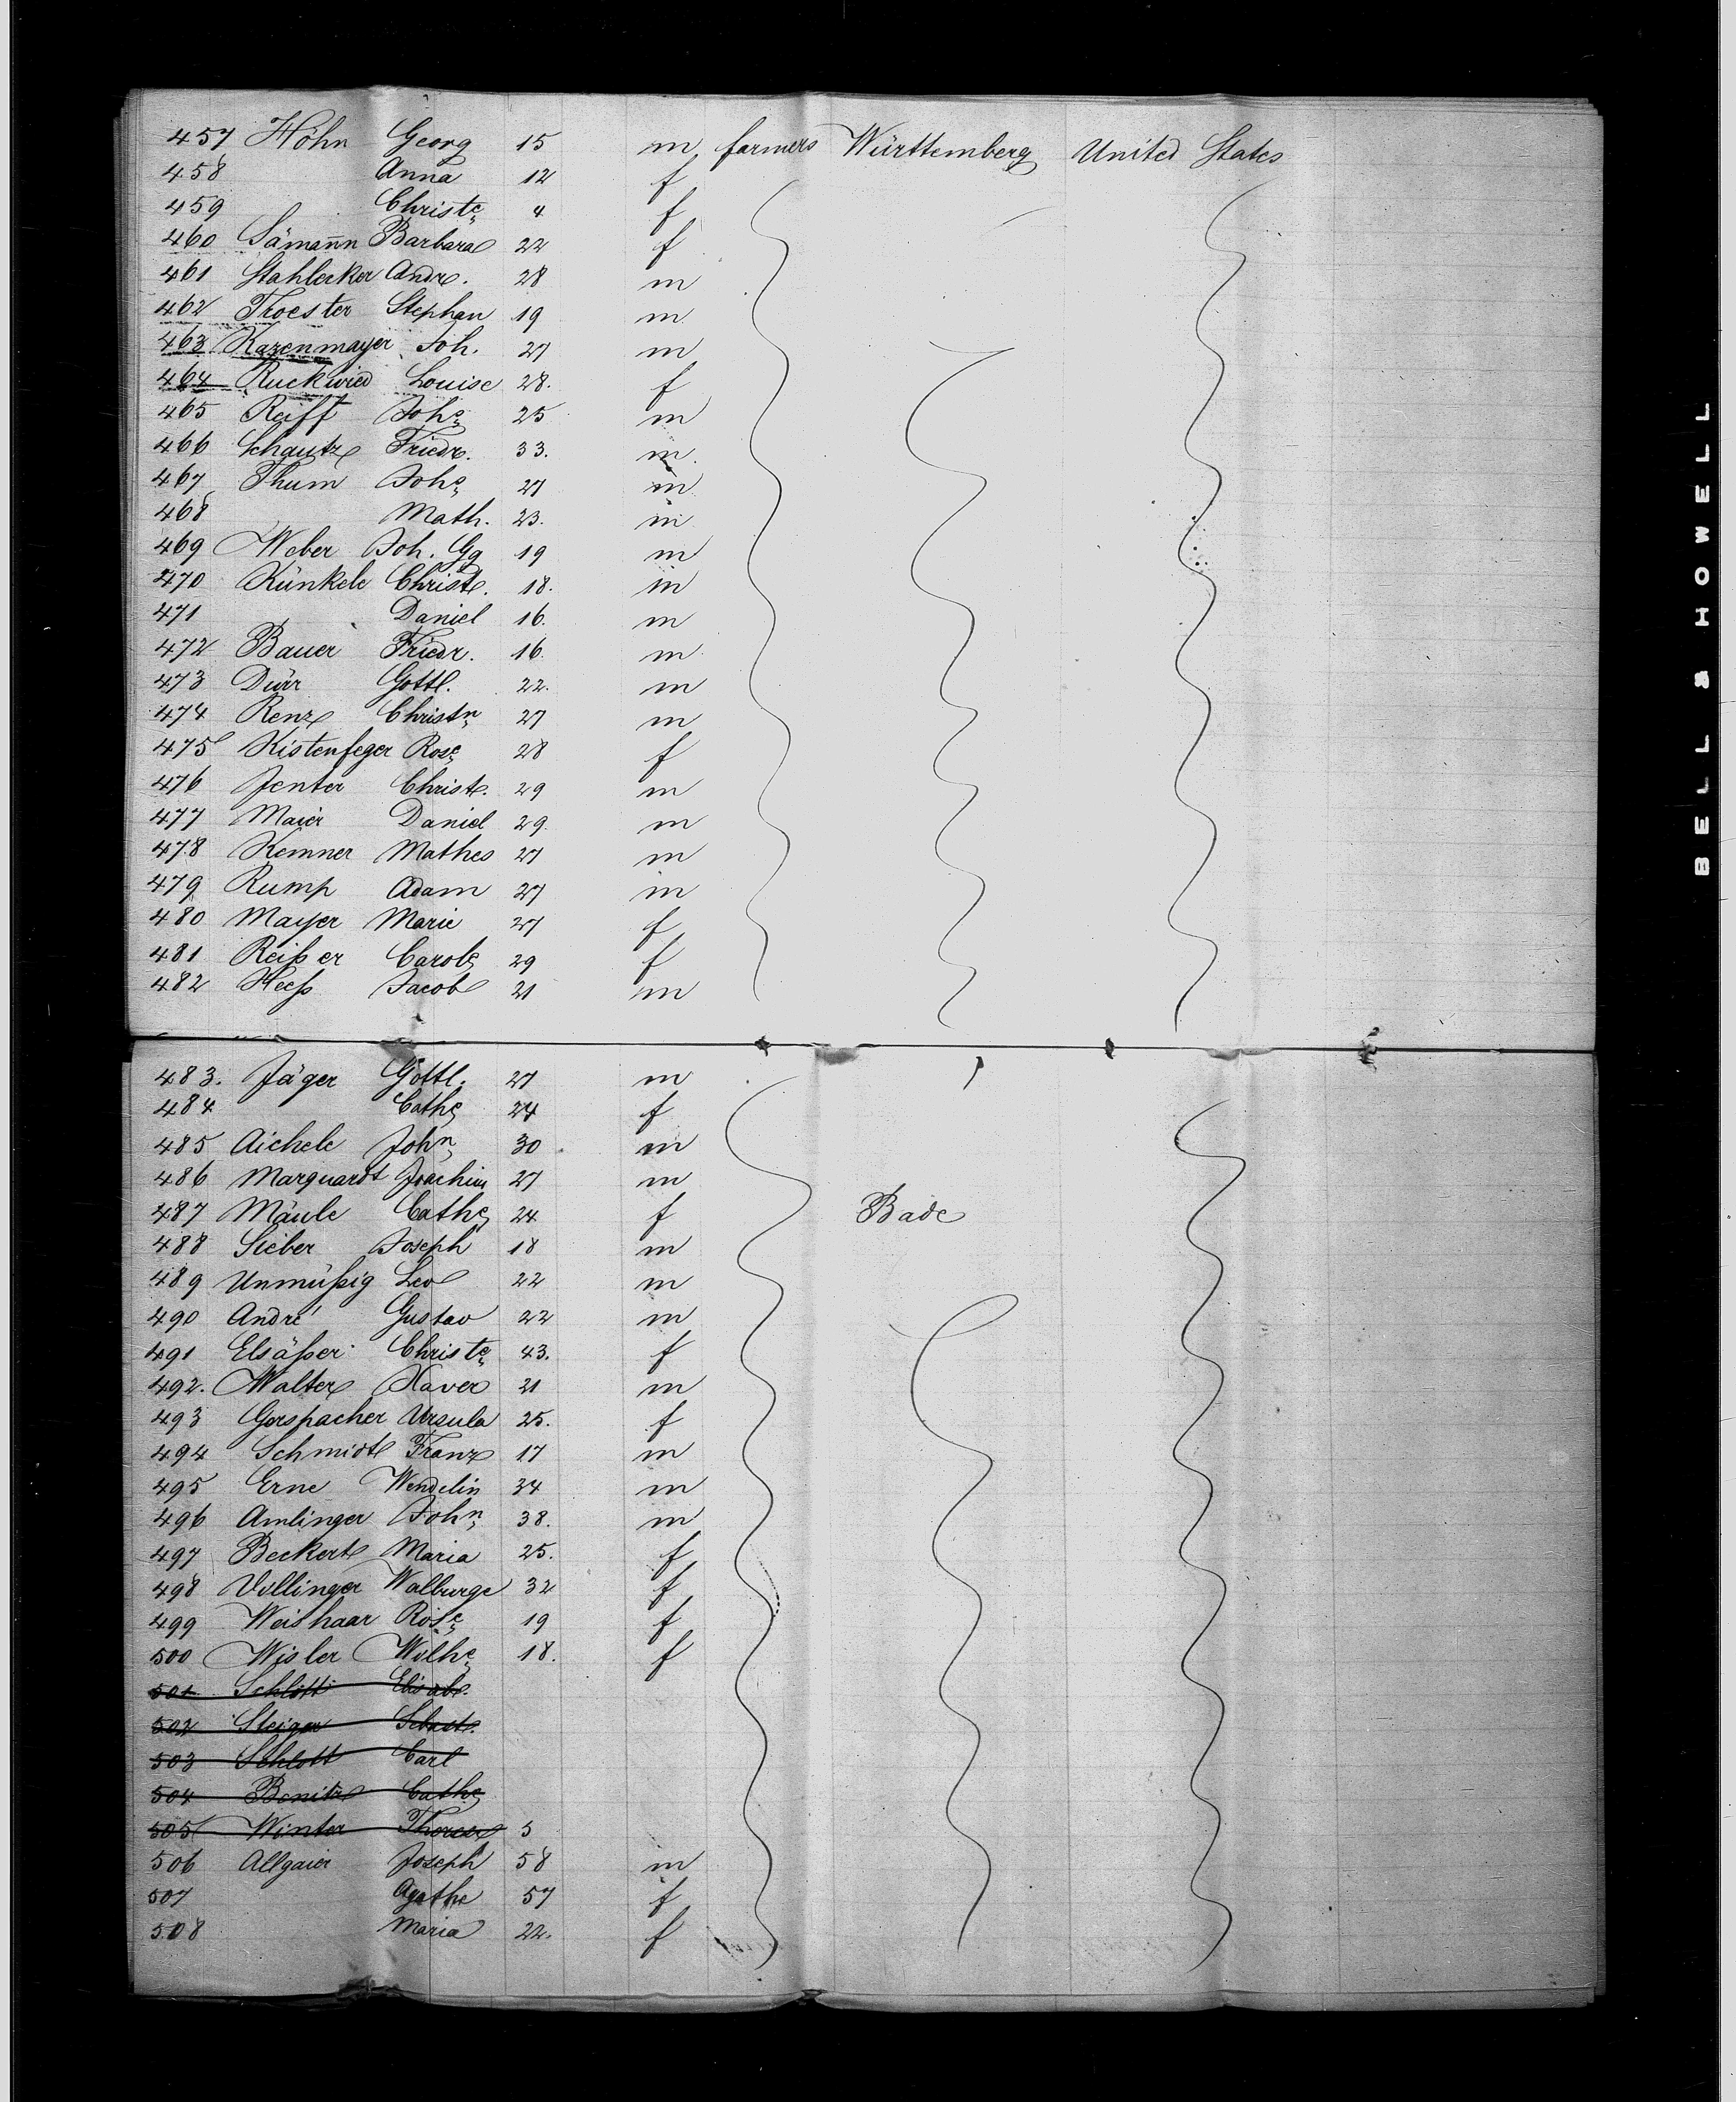 457 Höhn Georg 15 m farmers Württemberg United States
458 Anna 12 f
459 Christe 4 f
460 Sämann Barbara 22 f
461 Stahlecker Andr. 28 m
462 Troester Stephan 19 m
463 Kazenmayer Joh. 27 m
464 Ruckwied Louise 28. f
465 Reiff Johs 25 m
466 Schautz Friedr. 33. m
467 Thum Johs 27 m
468 Math. 23. m
469 Weber Joh. Gg 19 m
470 Künkele Christ. 18. m
471 Daniel 16. m
472 Bauer Friedr. 16. m
473 Dürr Gottl. 22. m
474 Renz Christn 27 m
475 Kistenfeger Rose 28 f
476 Jenter Christ. 29 m
477 Maier Daniel 29. m
478 Kemner Mathes 27 m
479 Rump Adam 27 m
480 Mayer Marie 27 f
481 Reißer Carole 29 f
482 Heeß Jacob 21 m
483. Jäger Gottl. 27 m
484 Cathe 24 f
485 Aichele John 30 m
486 Marquardt Joachim 27 m
487 Mäule Cathe 24 f Bade
488 Sieber Joseph 18 m
489 Unmüßig Leo 22 m
490 André Gustav 22 m
491 Elsäßer Christe 43. f
492. Walter Xaver 21 m
493 Gerspacher Ursula 25. f
494 Schmidt Franz 17 m
495 Erne Wendelin 34 m
496 Amlinger John 38. m
497 Beckert Maria 25. f
498 Vollinger Walburge 32 f
499 Weishaar Rose 19 f
500 Wisler Wilhe 18. f
501 Schlott Elisab.
502 Steiger Sebast.
503 Schlott Carl
504 Benitz Cathe
505 Winter Therese 5
506 Allgaier Joseph 58 m
507 Agathe 57 f
508 Maria 22. f
BELL & HOWELL